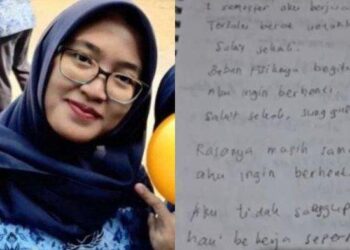 1 semester aku berjua
Terlalu berat untuk
Sakit sekali.
Beban fisiknya begit
Aku ingin berhenti
Sakit sekali, sunggu
Rasanya masih sam
aku ingin berhen
Aku tidak sanggup
hari bekerja seper